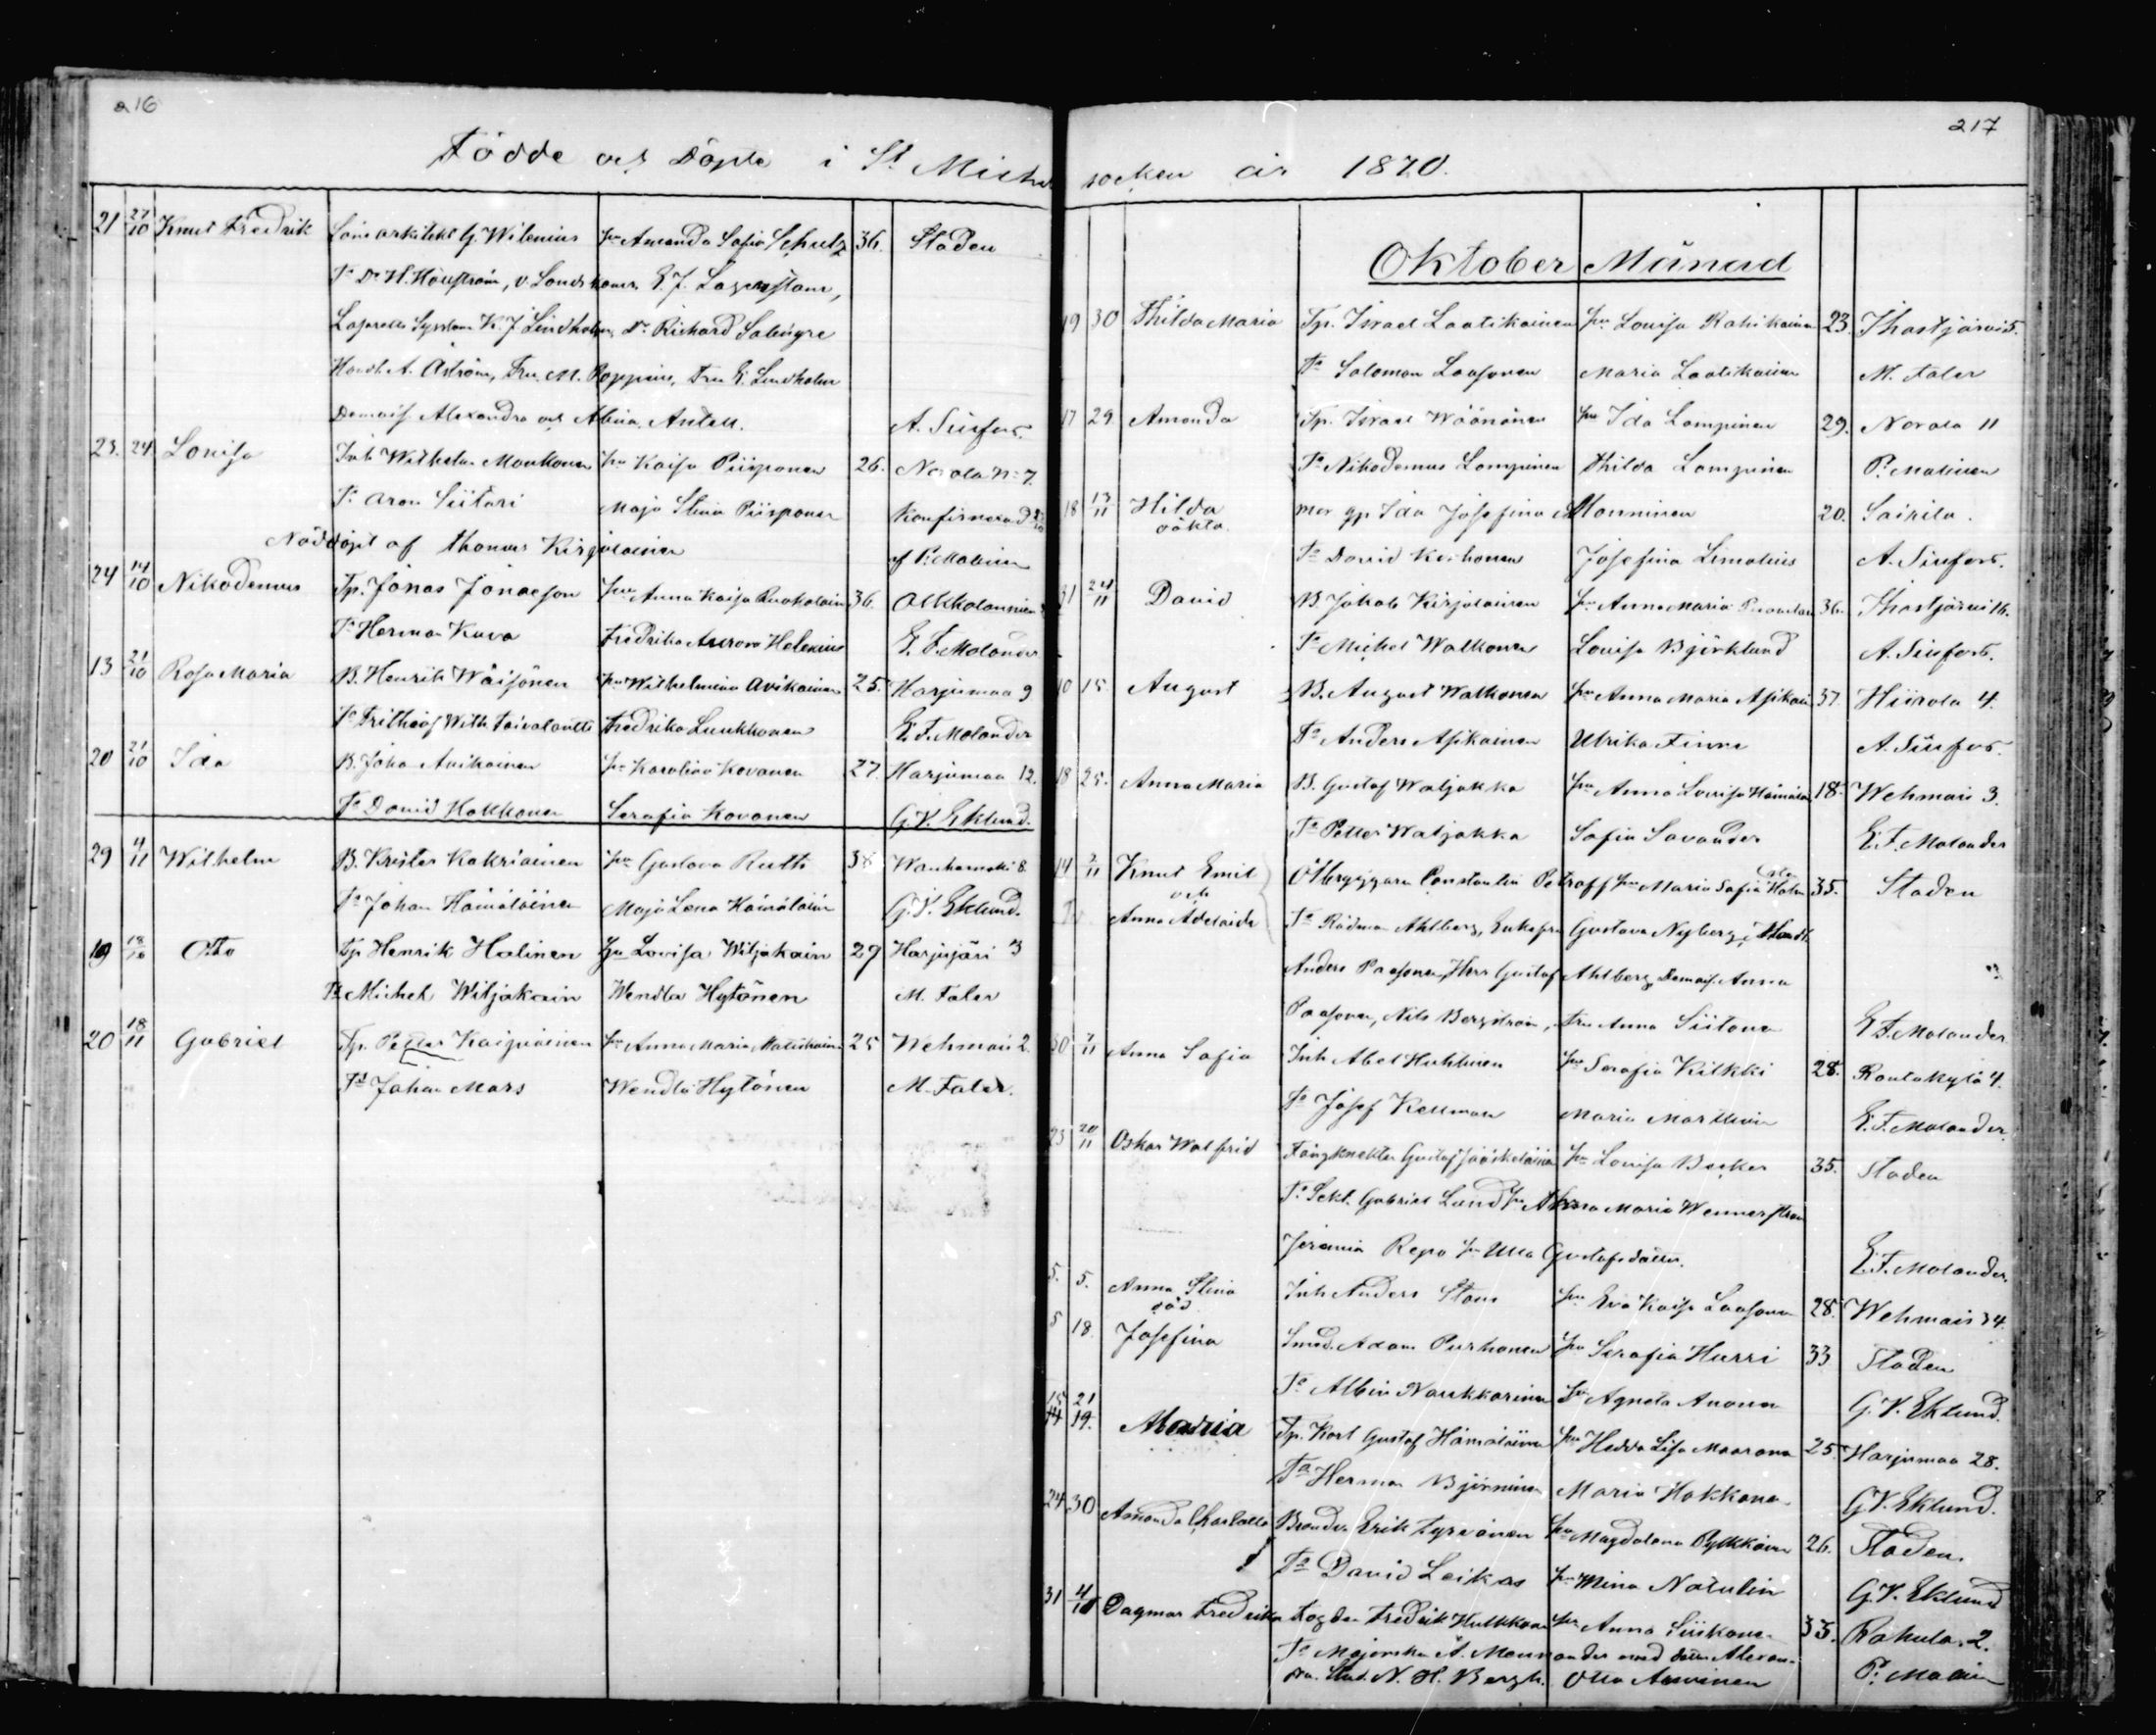 216
Födde och Döpte i St Miche
21 27/10 Knut Fredrik Läns arkitekt G. Wilenius hu Amanda Sofia Schulz 36. Staden
Ft Dr H. Hällström, v. Landskamr. E. J. Lagerstam,
Lasaretts Syssloma K. J Lindholm, Dr Richard
Handl. A. Åström, Fru M. Poppius, Fru E. Lindholm
Demois. Alexandra och Albina Antell. A. Siufors.
23. 24 Lovisa Inh Wilhelm Monkonen hu Kaisa Piisponen 26. Norola No 7.
Ft Aron Siitari Maja Stina Piisponen Konfirmerad
Nöddöpt af Thomas Kirjalainen af P. Malinen
24 14/10 Nikodemus Tp. Jonas Jonaeson hu Anna Kaisa 36. Olkkolanniemi
Ft Herman Kuva Fredrika Aurora Helenius E. F. Molander
13 21/10 Rosa Maria B. Henrik Wäisönen hu Wilhelmina Avikainen 25. Harjumaa 9
Ft Frithiof Wilh. Taivalantti Fredrika Luukkonen E. F. Molander
20 21/10 Ida B. Joha Avikainen hu Karolina Kovanen 27. Harjumaa 12.
Ft David Kakkonen Serafia Kovanen G. V. Eklund.
29 4/11 Wilhelm B. Krister Kakriainen hu Gustava Ruth 38 8.
Ft Johan Hämäläinen Maja Lena Hämäläin G. V. Eklund.
19 18/10 Otto Tp Henrik Halinen hu Lovisa Wiljakain 29 Harjujäri 3
Ft Michel Wiljakain Wendla Hytönen M. Faler
20 18/11 Gabriel Tp. Petter Kaipiainen hu Anna Maria Matiskain 25 Wehmais 2.
Ft Johan Mars Wendla Hytönen M. Faler.
217
socken år 1870.
Oktober Månad
19 30 Thilda Maria Tp. Israel Laatikainen hu Lovisa Rahikainen 23. Ihastjärvi 5.
Ft Salomon Laasonen Maria Laatikainen M. Faler
17 29 Amanda Tp. Israel Wäänänen hu Ida Lampinen 29. Norola 11
Ft Nikodemus Lampinen Thilda Lampinen P. Malinen
18 13/11 Hilda mor qp Ida Josefina Manninen 20. Sairila.
oäkta.
Ft David Korhonen Josefina Limatius A. Siufors.
31 24/11 David B. Jakob Kirjalainen hu Anna Maria 36. Ihastjärvi 16.
Ft Michel Walkonen Lovisa Björklund A. Siufors.
10 15. August B. August Walkonen hu Anna Maria Asikain 37. Hiirola 4.
Ft Anders Asikainen Ulrika Finne A. Siufors.
18 25. Anna Maria B. Gustaf Waljakka hu Anna Lovisa Hämäläi 18. Wehmais 3.
Ft Petter Waljakka Sofia Savander E. F. Molander
14 2/11 Knut Emil Ölbryggaren Constantin Petroff hu Maria Sofia Holm 35. Staden
och
Anna Adelaide Ft Rådman Ahlberg, Enkefru Gustava Nyberg, Handl.
Anders Paasonen, Herr Gustaf Ahlberg, Demois. Anna
Paasonen, Nils Bergström, Fru Anna Siitonen E F. Molander
30 7/11 Anna Sofia Inh Abel Huhtinen hu Serafia Kilkki 28. Rantakylä 4.
Ft Josef Kellman Maria Marttinen E. F. Molander.
23 20/11 Oskar Walfrid Fångknekten Gustaf Jääskeläinen hu Lovisa Becker 35. Staden
Ft Gabriel Lund hu Anna Maria Wennerstrom
Jeremia Repo hu Ulla Gustafsdotter. E. F. Molander.
5. 5. Anna Stina Inh Anders Stam hu Eva Kaisa Laasonen 28. Wehmais 34.
död
5 18. Josefina Smed. Adam Purhonen hu Serafia Hurri 33 Staden
Ft Albin Naukkarinen hu Agneta Anonen G. V. Eklund.
15 21
14 19. Maria Tp. Karl Gustaf Hämäläinen hu Hedda Lisa Maaranen 25. Harjumaa 28.
Ft Herman Björninen Maria Hakkana. G. V. Eklund.
24 30 Amanda Charlotta Erik Tyrväinen hu Magdalena Pylkkänen 26. Staden.
Ft David Leikas hu Mina Natulin G. V. Eklund
31 4/11 Dagmar Fredrika Fogden Fredrik Hulkkonen hu Anna Siiskonen 35. Rahula. 2.
Ft Majorska A. Mannander med Alexan-
dra. Stud. N. H. Bergh. Otto Auvinen P. Malin